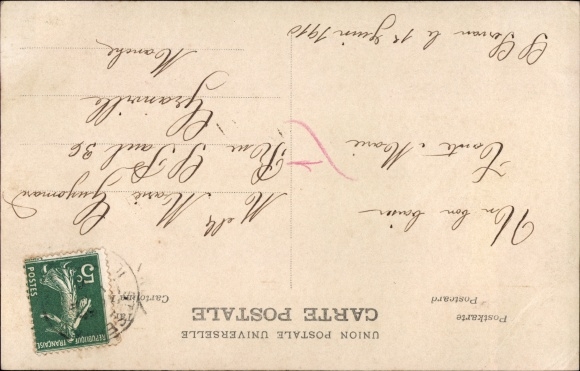 UNION POSTALE UNIVERSELLE
CARTE POSTALE
Postkarte
Postcard
Cartolina
5c
POSTES
REPUBLIQUE FRANÇAISE
Un bon baiser
Tante Marie
St Servan le 1er Juin 1910
Melle Marie Guyomard
Rue St Paul 36
Granville
Manche